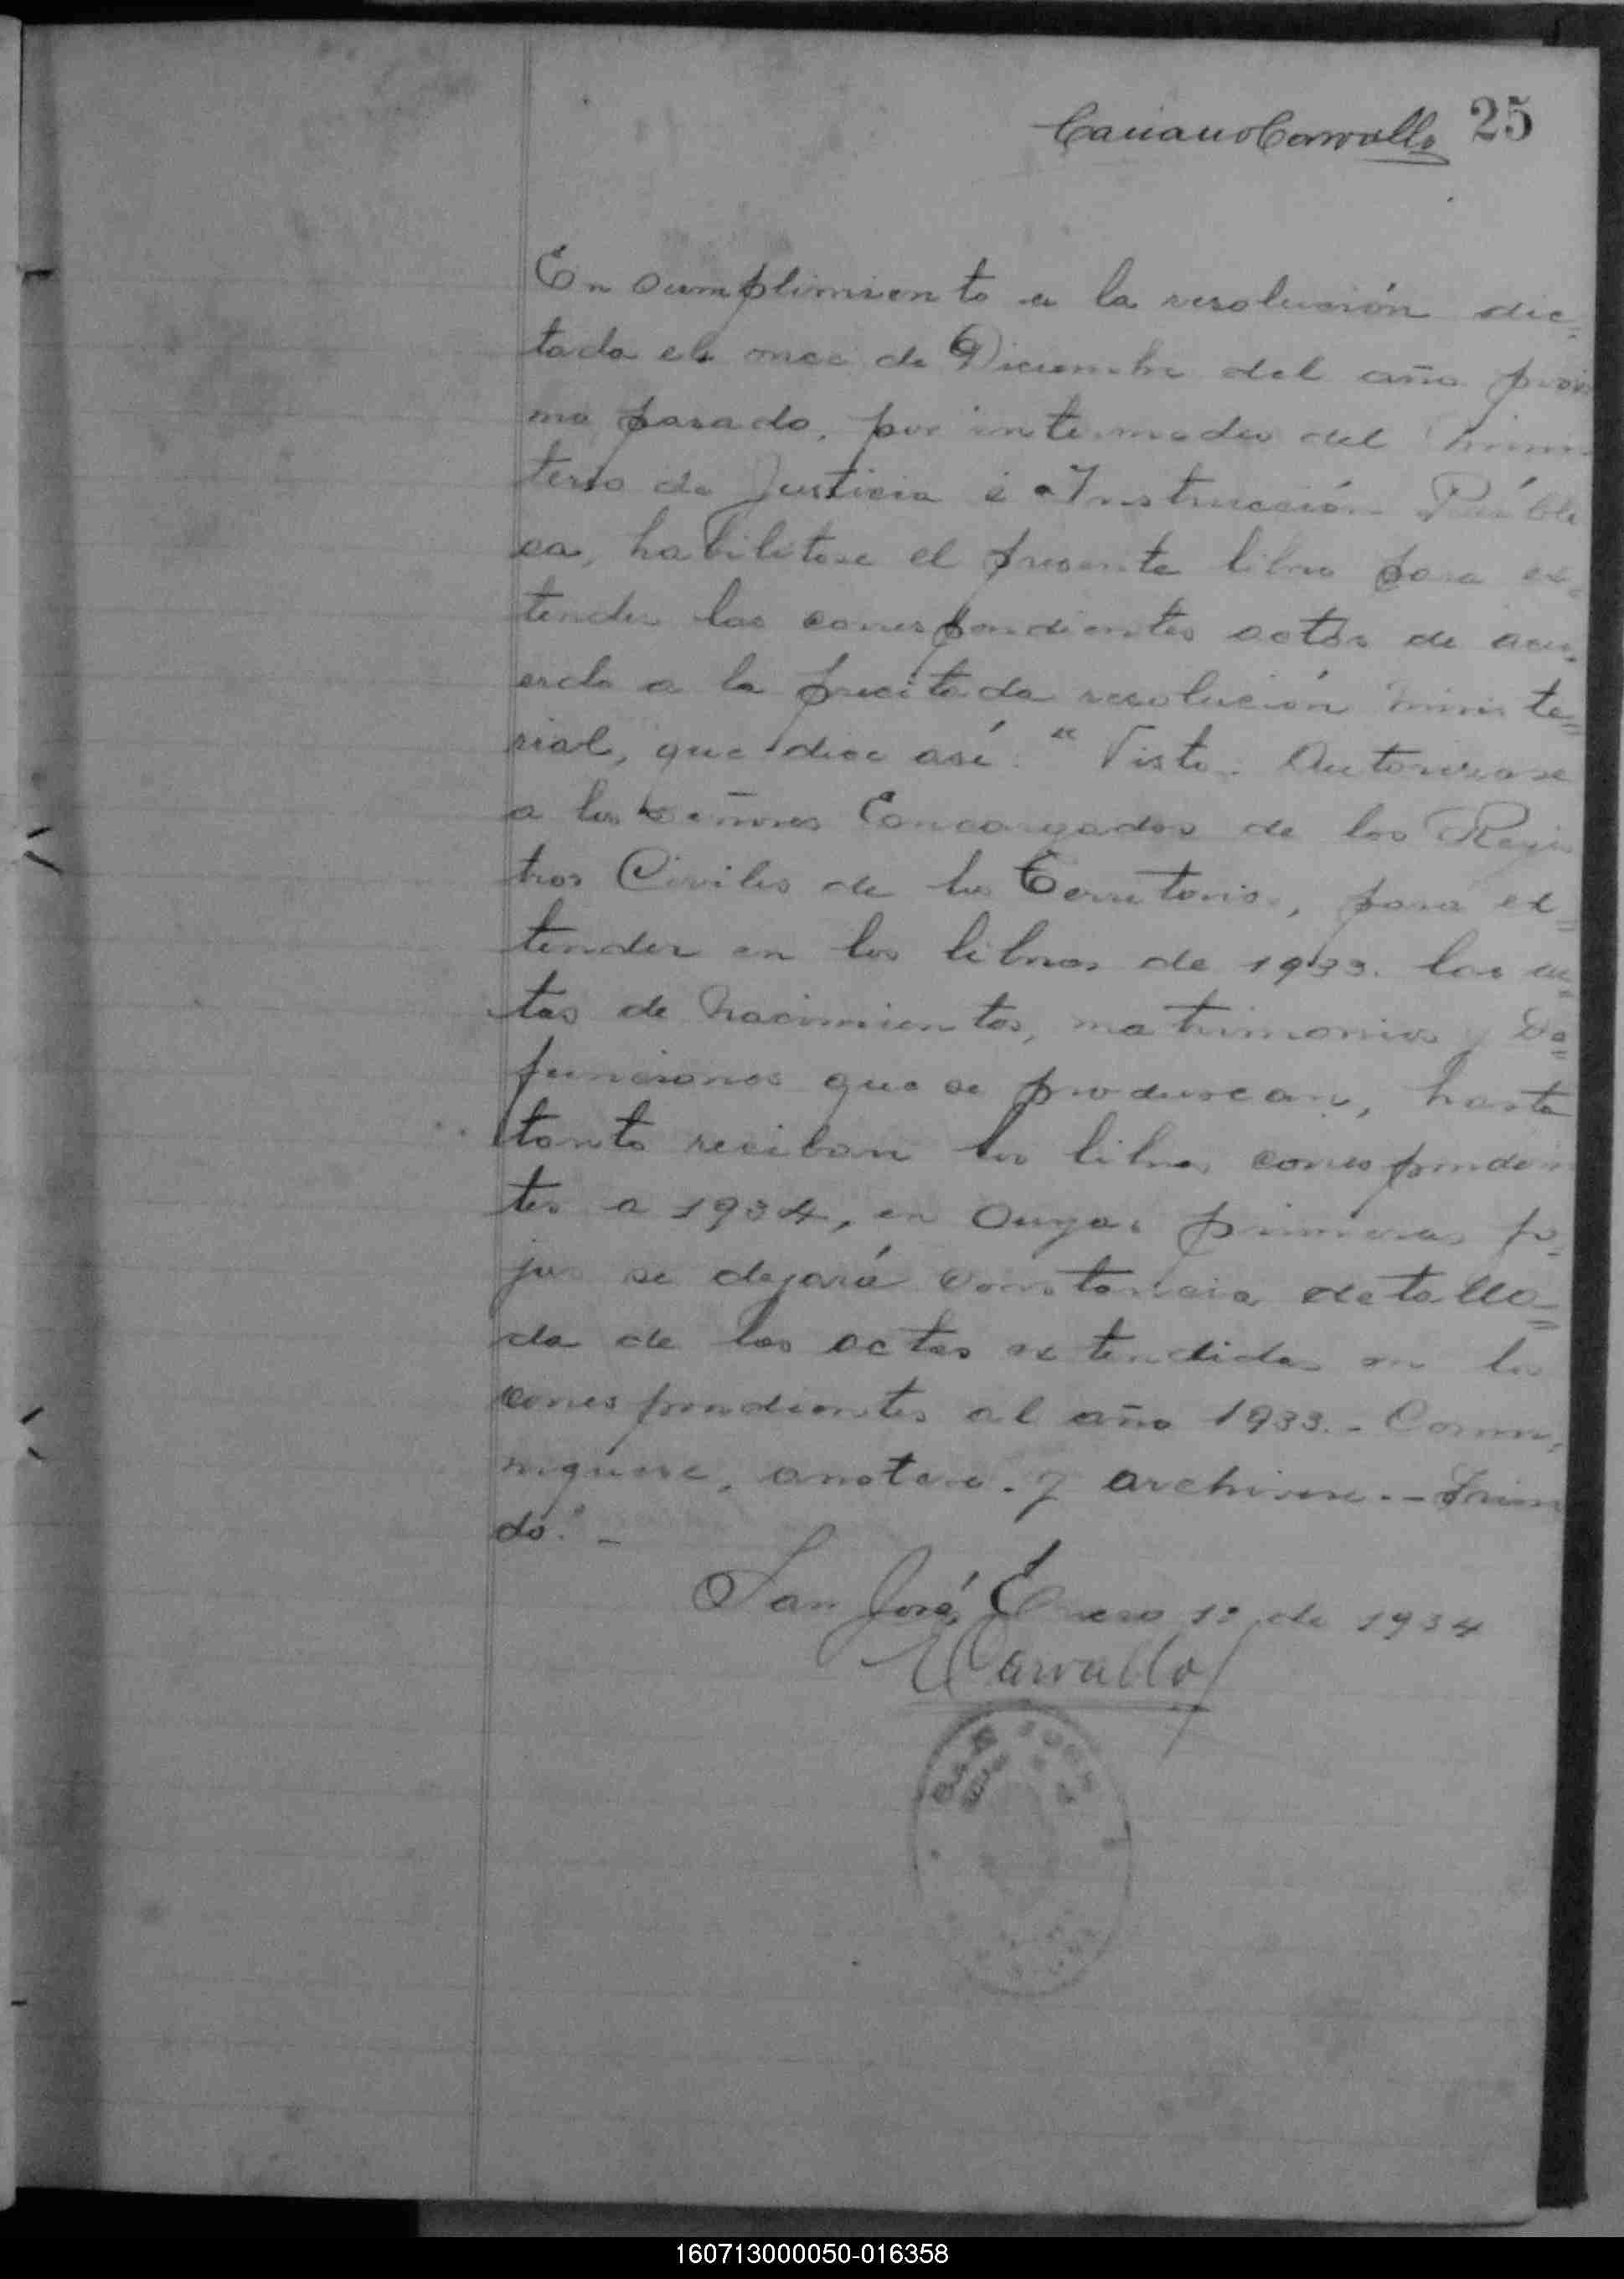 Carvallo 25
En cumplimiento a la resolución dic=
tada el once de Diciembre del año proxi
mo pasado, por intermedio del Minis
terio de Justicia é Instrucción Públi
ca, habilitase el presente libro para ex=
tender las correspondientes actas de acu=
erdo a la precitada resolución ministe=
rial, que dice así: "Visto. Autorizase
a los señores Encargados de los Regis
tros Civiles de los Territorios, para ex=
tender en los libros de 1933. las ac=
tas de nacimientos, matrimonios y De=
funciones que se produzcan, hasta
tanto reciban los libros correspondien
tes a 1934, en cuyas primeras fo=
jas se dejará constancia detalla=
da de las actas extendidas en los
correspondientes al año 1933.- Comu=
niquese, anotese. y archivese.-
do."-
San José, Enero 1º de 1934
Carvallo
160713000050-016358